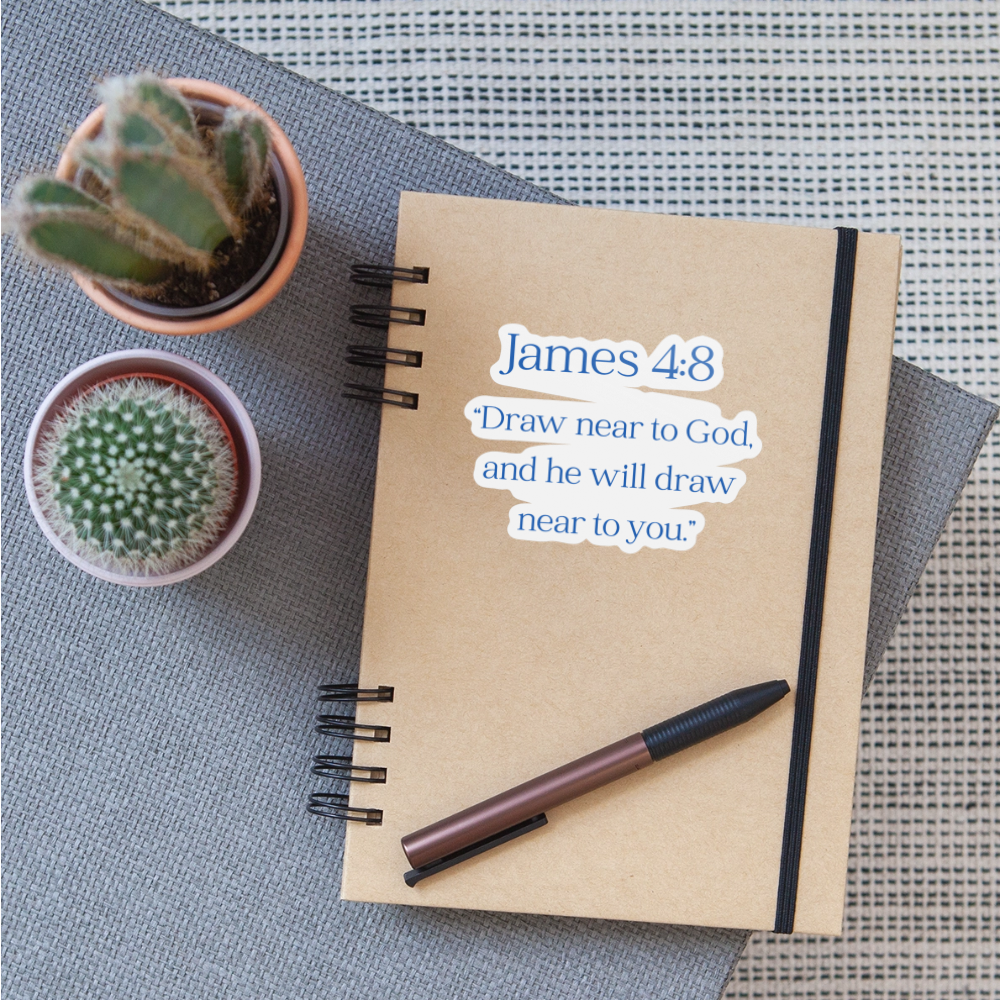 James 4:8
“Draw near to God,
and he will draw
near to you.”